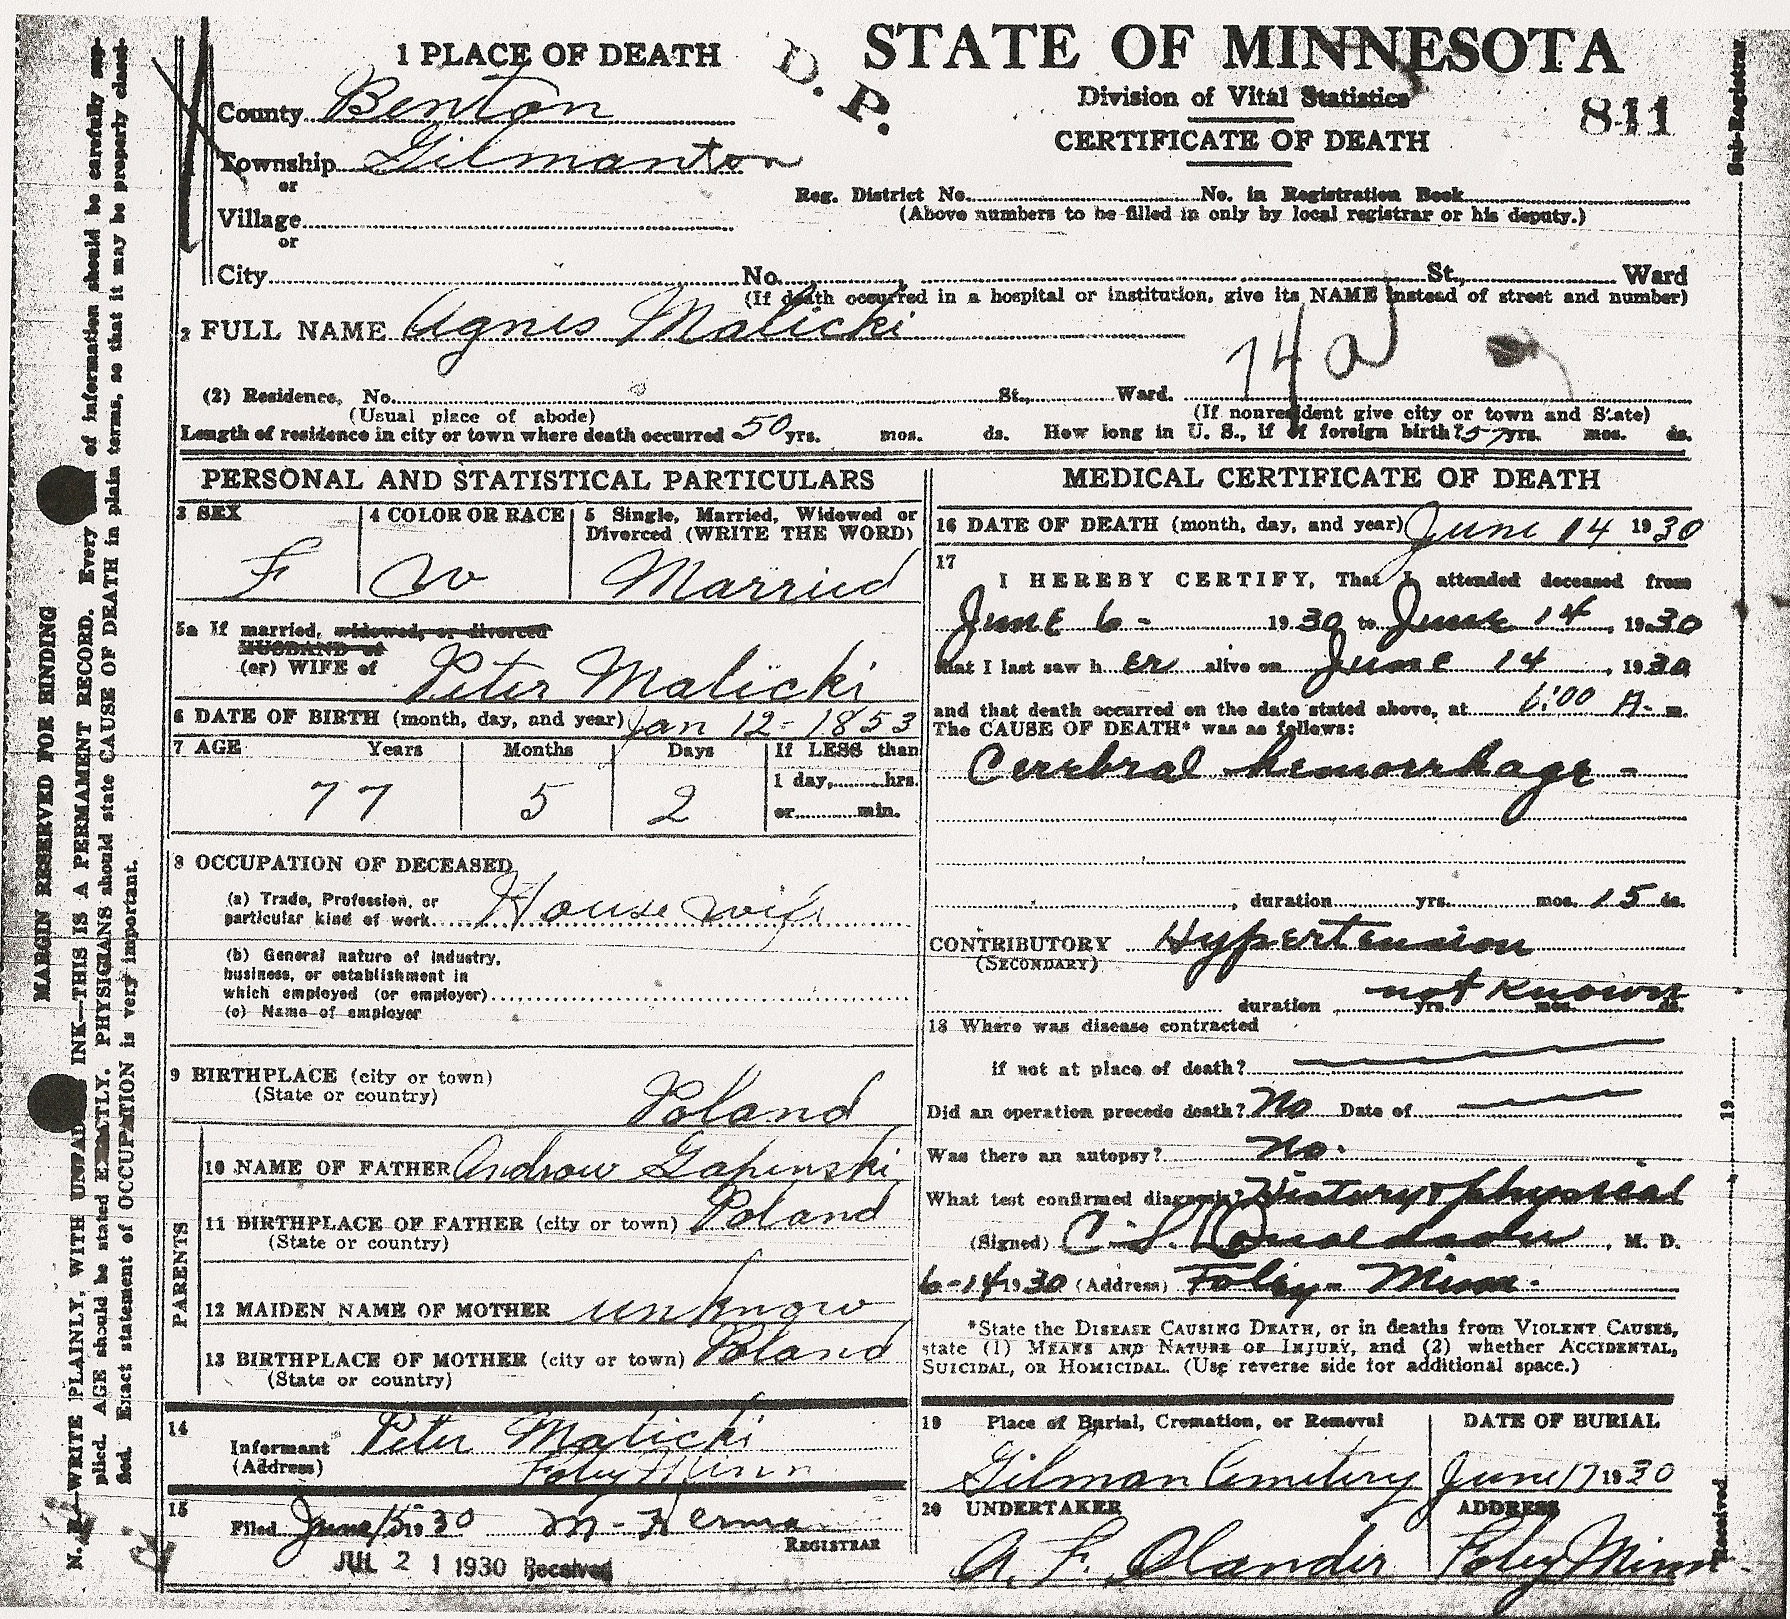 1 PLACE OF DEATH
D. P.
STATE OF MINNESOTA
Division of Vital Statistics
CERTIFICATE OF DEATH
811
County Benton
Township Gilmanton
or
Village
or
City No. St., Ward
Reg. District No. No. in Registration Book
(Above numbers to be filled in only by local registrar or his deputy.)
(If death occurred in a hospital or institution, give its NAME instead of street and number)
2 FULL NAME Agnes Malicki
74a
(2) Residence, No. St., Ward.
(Usual place of abode) (If nonresident give city or town and State)
Length of residence in city or town where death occurred 50 yrs. mos. ds. How long in U. S., if of foreign birth? 57 yrs. mos. ds.
PERSONAL AND STATISTICAL PARTICULARS
3 SEX 4 COLOR OR RACE 5 Single, Married, Widowed or
Divorced (WRITE THE WORD)
F W Married
5a If married, widowed, or divorced
HUSBAND of
(or) WIFE of Peter Malicki
6 DATE OF BIRTH (month, day, and year) Jan 12 - 1853
7 AGE Years Months Days If LESS than
1 day, hrs.
77 5 2 or min.
8 OCCUPATION OF DECEASED
(a) Trade, Profession, or
particular kind of work House wife
(b) General nature of industry,
business, or establishment in
which employed (or employer)
(c) Name of employer
9 BIRTHPLACE (city or town)
(State or country) Poland
PARENTS
10 NAME OF FATHER Andrew Gapinski
11 BIRTHPLACE OF FATHER (city or town) Poland
(State or country)
12 MAIDEN NAME OF MOTHER unknow
13 BIRTHPLACE OF MOTHER (city or town) Poland
(State or country)
14
Informant Peter Malicki
(Address) Foley Minn
15
Filed June 15 1930 M. Herman
REGISTRAR
JUL 21 1930 Received
MEDICAL CERTIFICATE OF DEATH
16 DATE OF DEATH (month, day, and year) June 14 1930
17
I HEREBY CERTIFY, That I attended deceased from
June 6 - 1930 to June 14, 1930
that I last saw her alive on June 14, 1930
and that death occurred on the date stated above, at 6:00 A. m.
The CAUSE OF DEATH* was as follows:
Cerebral hemorrhage -
, duration yrs. mos. 15 ds.
CONTRIBUTORY Hypertension
(SECONDARY)
not known
duration yrs. mos. ds.
18 Where was disease contracted
if not at place of death?
Did an operation precede death? No Date of
Was there an autopsy? no.
What test confirmed diagnosis? History & physical
(Signed) C. S. Donaldson, M. D.
6-14 1930 (Address) Foley - Minn.
*State the DISEASE CAUSING DEATH, or in deaths from VIOLENT CAUSES,
state (1) MEANS AND NATURE OF INJURY, and (2) whether ACCIDENTAL,
SUICIDAL, OR HOMICIDAL. (Use reverse side for additional space.)
19 Place of Burial, Cremation, or Removal DATE OF BURIAL
Gilman Cemetery June 17 1930
20 UNDERTAKER ADDRESS
A. F. Olander Foley Minn.
MARGIN RESERVED FOR BINDING
N. B.—WRITE PLAINLY, WITH UNFADING INK—THIS IS A PERMAMENT RECORD. Every of information should be carefully sup-
plied. AGE should be stated EXACTLY. PHYSICIANS should state CAUSE OF DEATH in plain terms, so that it may be properly classi-
fied. Exact statement of OCCUPATION is very important.
Received 19 Sub-Registrar